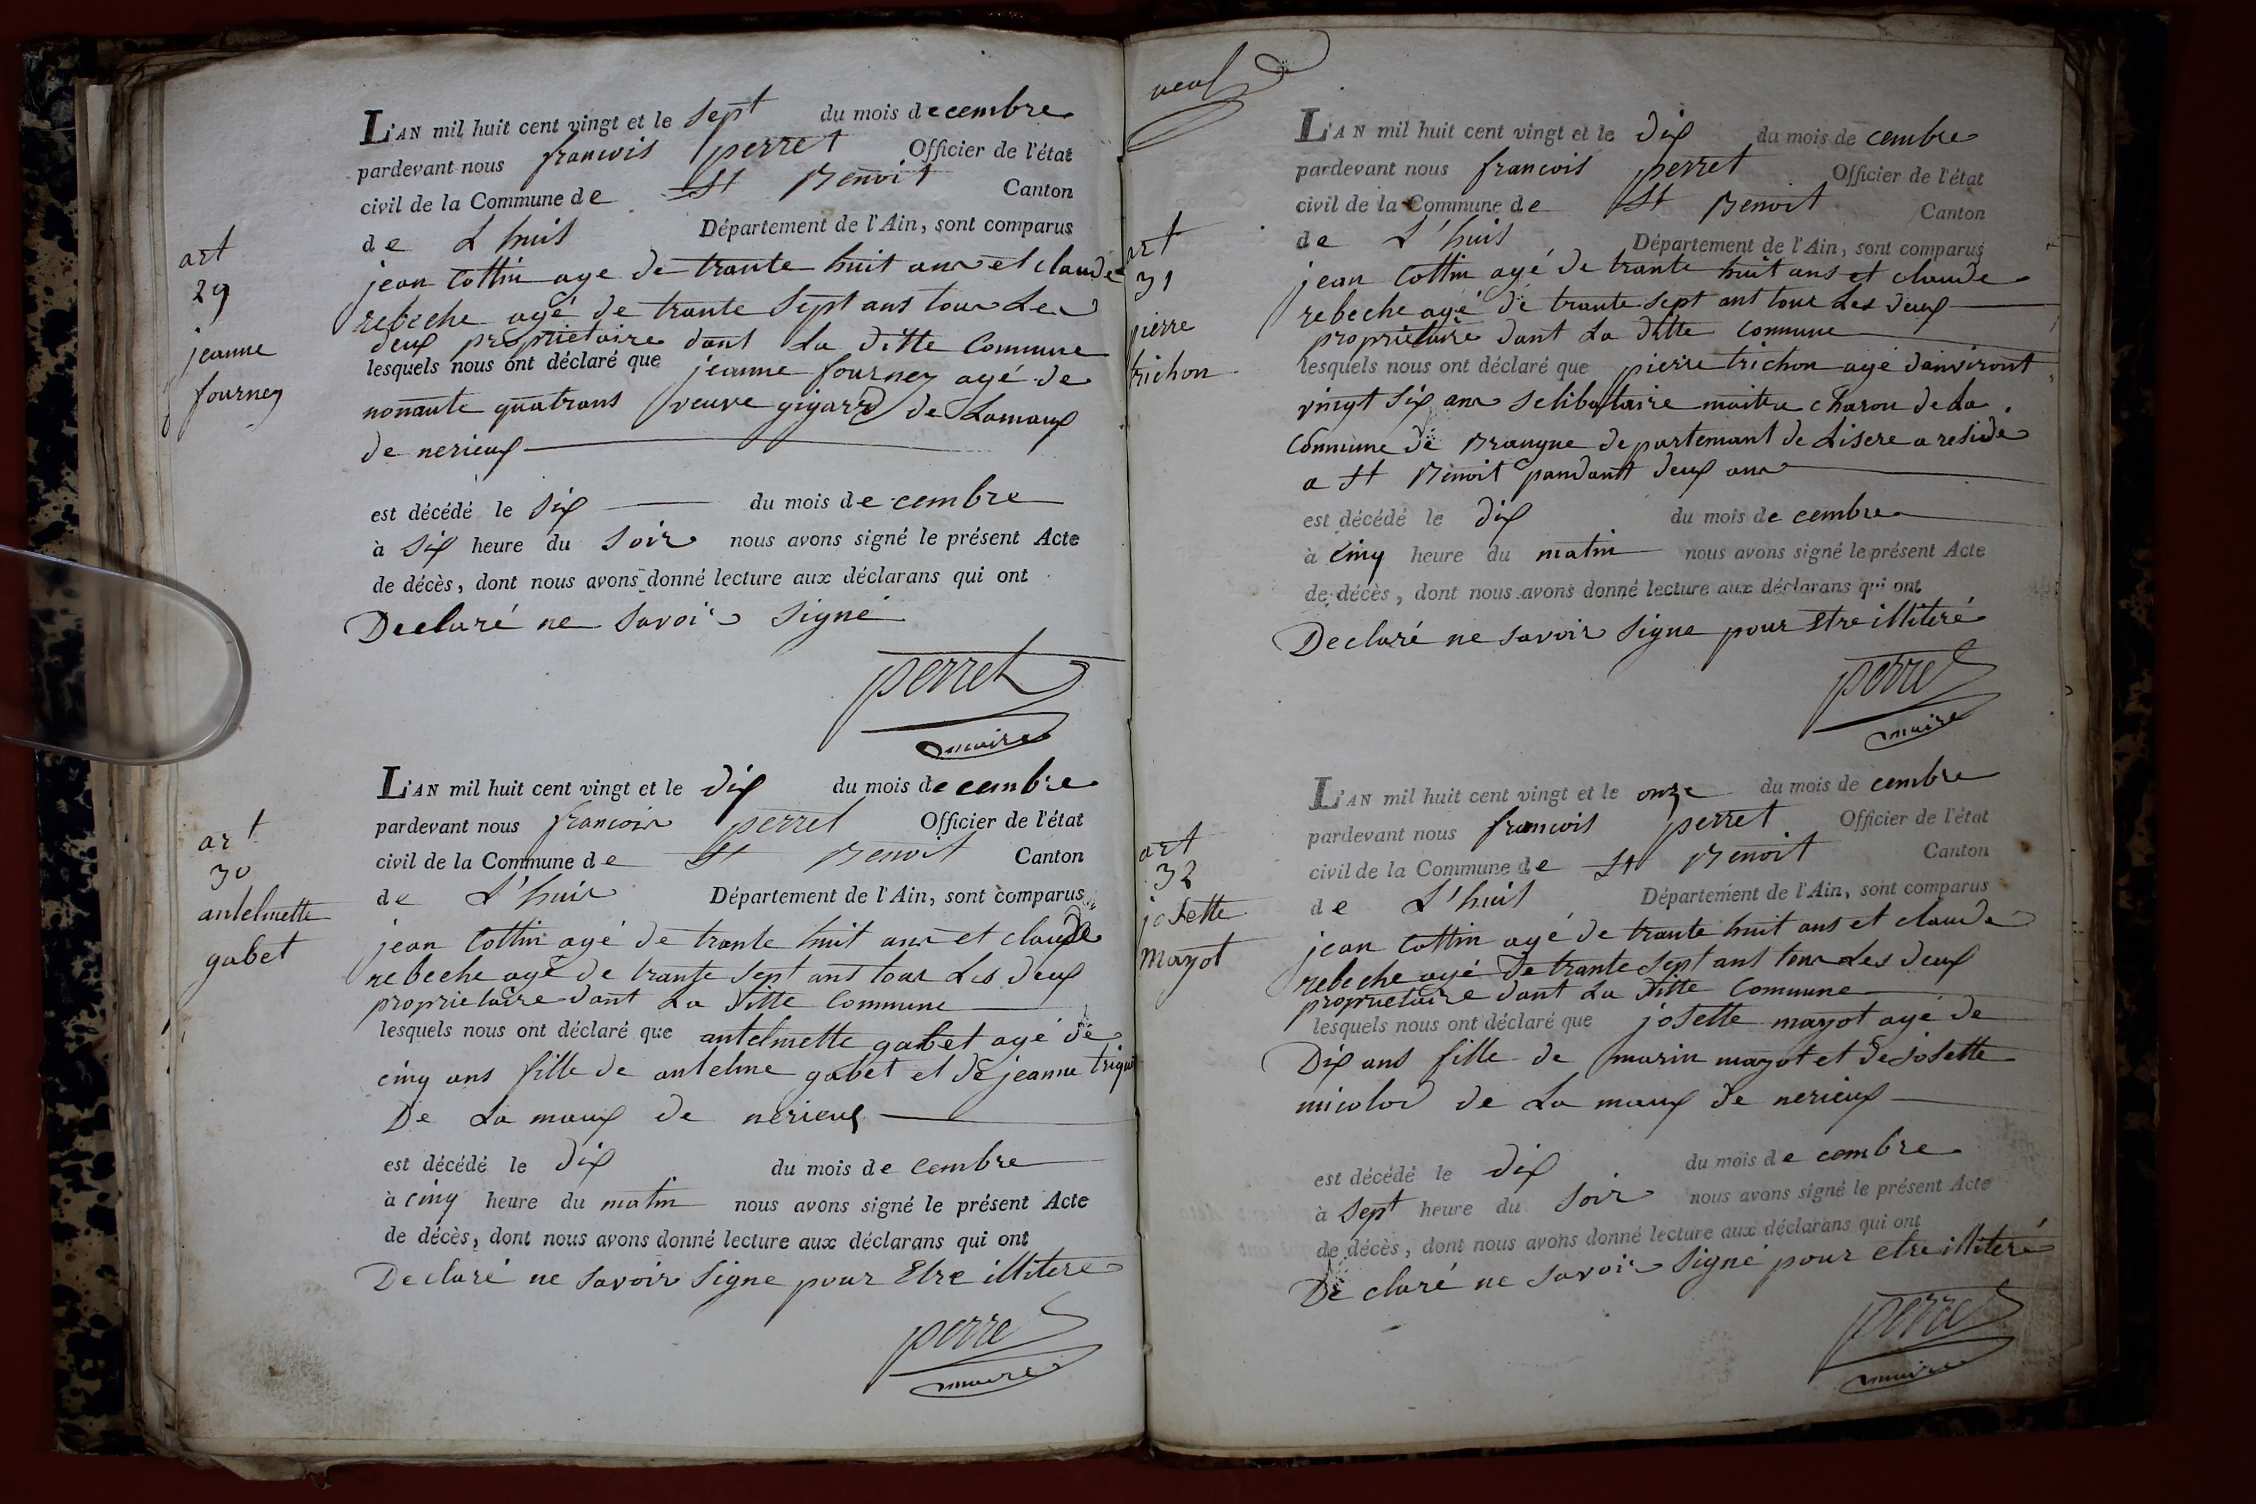 art
29
jeanne
fourney
L'AN mil huit cent vingt et le sept du mois decembre
pardevant nous francois perret Officier de l'état
civil de la Commune de St Benoit Canton
de L huis Département de l'Ain, sont comparus
jean Cottin age de trante huit ans et claude
rebeche agé de trante sept ans tous Les
deux propriétaire dant La ditte Commune
lesquels nous ont déclaré que jeanne fourney agé de
nonante quatrans veuve gigard de Lamaux
de nerieux
est décédé le six du mois de cembre
à six heure du soir nous avons signé le présent Acte
de décès, dont nous avons donné lecture aux déclarans qui ont
Declaré ne savoir signé
perret
maire
art
30
antelmette
gabet
L'AN mil huit cent vingt et le dix du mois de cembre
pardevant nous francois perret Officier de l'état
civil de la Commune de St Benoit Canton
de L'huis Département de l'Ain, sont comparus
jean Cottin agé de trante huit ans et claude
rebeche agé de trante sept ans tous Les deux
proprietaire dant La ditte Commune
lesquels nous ont déclaré que antelmette gabet agé de
cinq ans fille de antelme gabet et de jeanne
De La maux de nerieux
est décédé le dix du mois de cembre
à cinq heure du matin nous avons signé le présent Acte
de décès, dont nous avons donné lecture aux déclarans qui ont
Declaré ne savoir signe pour Etre illitere
perret
maire
art
31
pierre
trichon
L'AN mil huit cent vingt et le dix du mois de cembre
pardevant nous francois perret Officier de l'état
civil de la Commune de St Benoit Canton
de L'huis Département de l'Ain, sont comparus
jean Cottin agé de trante huit ans et claude
rebeche agé de trante sept ans tous Les deux
proprietaire dant La ditte Commune
lesquels nous ont déclaré que pierre trichon agé danviront
vingt six ans selibataire maitre charon de La
Commune de Brangue departemant de Lisere a reside
a St Benoit pandant deux ans
est décédé le dix du mois de cembre
à cinq heure du matin nous avons signé le présent Acte
de décès, dont nous avons donné lecture aux déclarans qui ont
Declaré ne savoir signe pour Etre illiteré
perret
maire
art
32
josette
mayot
L'AN mil huit cent vingt et le onze du mois de cembre
pardevant nous francois perret Officier de l'état
civil de la Commune de St Benoit Canton
de L'huis Département de l'Ain, sont comparus
jean Cottin agé de trante huit ans et claude
rebeche agé de trante sept ans tous Les deux
proprietaire dant La ditte Commune
lesquels nous ont déclaré que josette mayot agé de
Dix ans fille de marin mayot et de josette
micolod de La maux de nerieux
est décédé le dix du mois de cembre
à sept heure du soir nous avons signé le présent Acte
de décès, dont nous avons donné lecture aux déclarans qui ont
De claré ne savoir signé pour etre illiteré
perret
maire